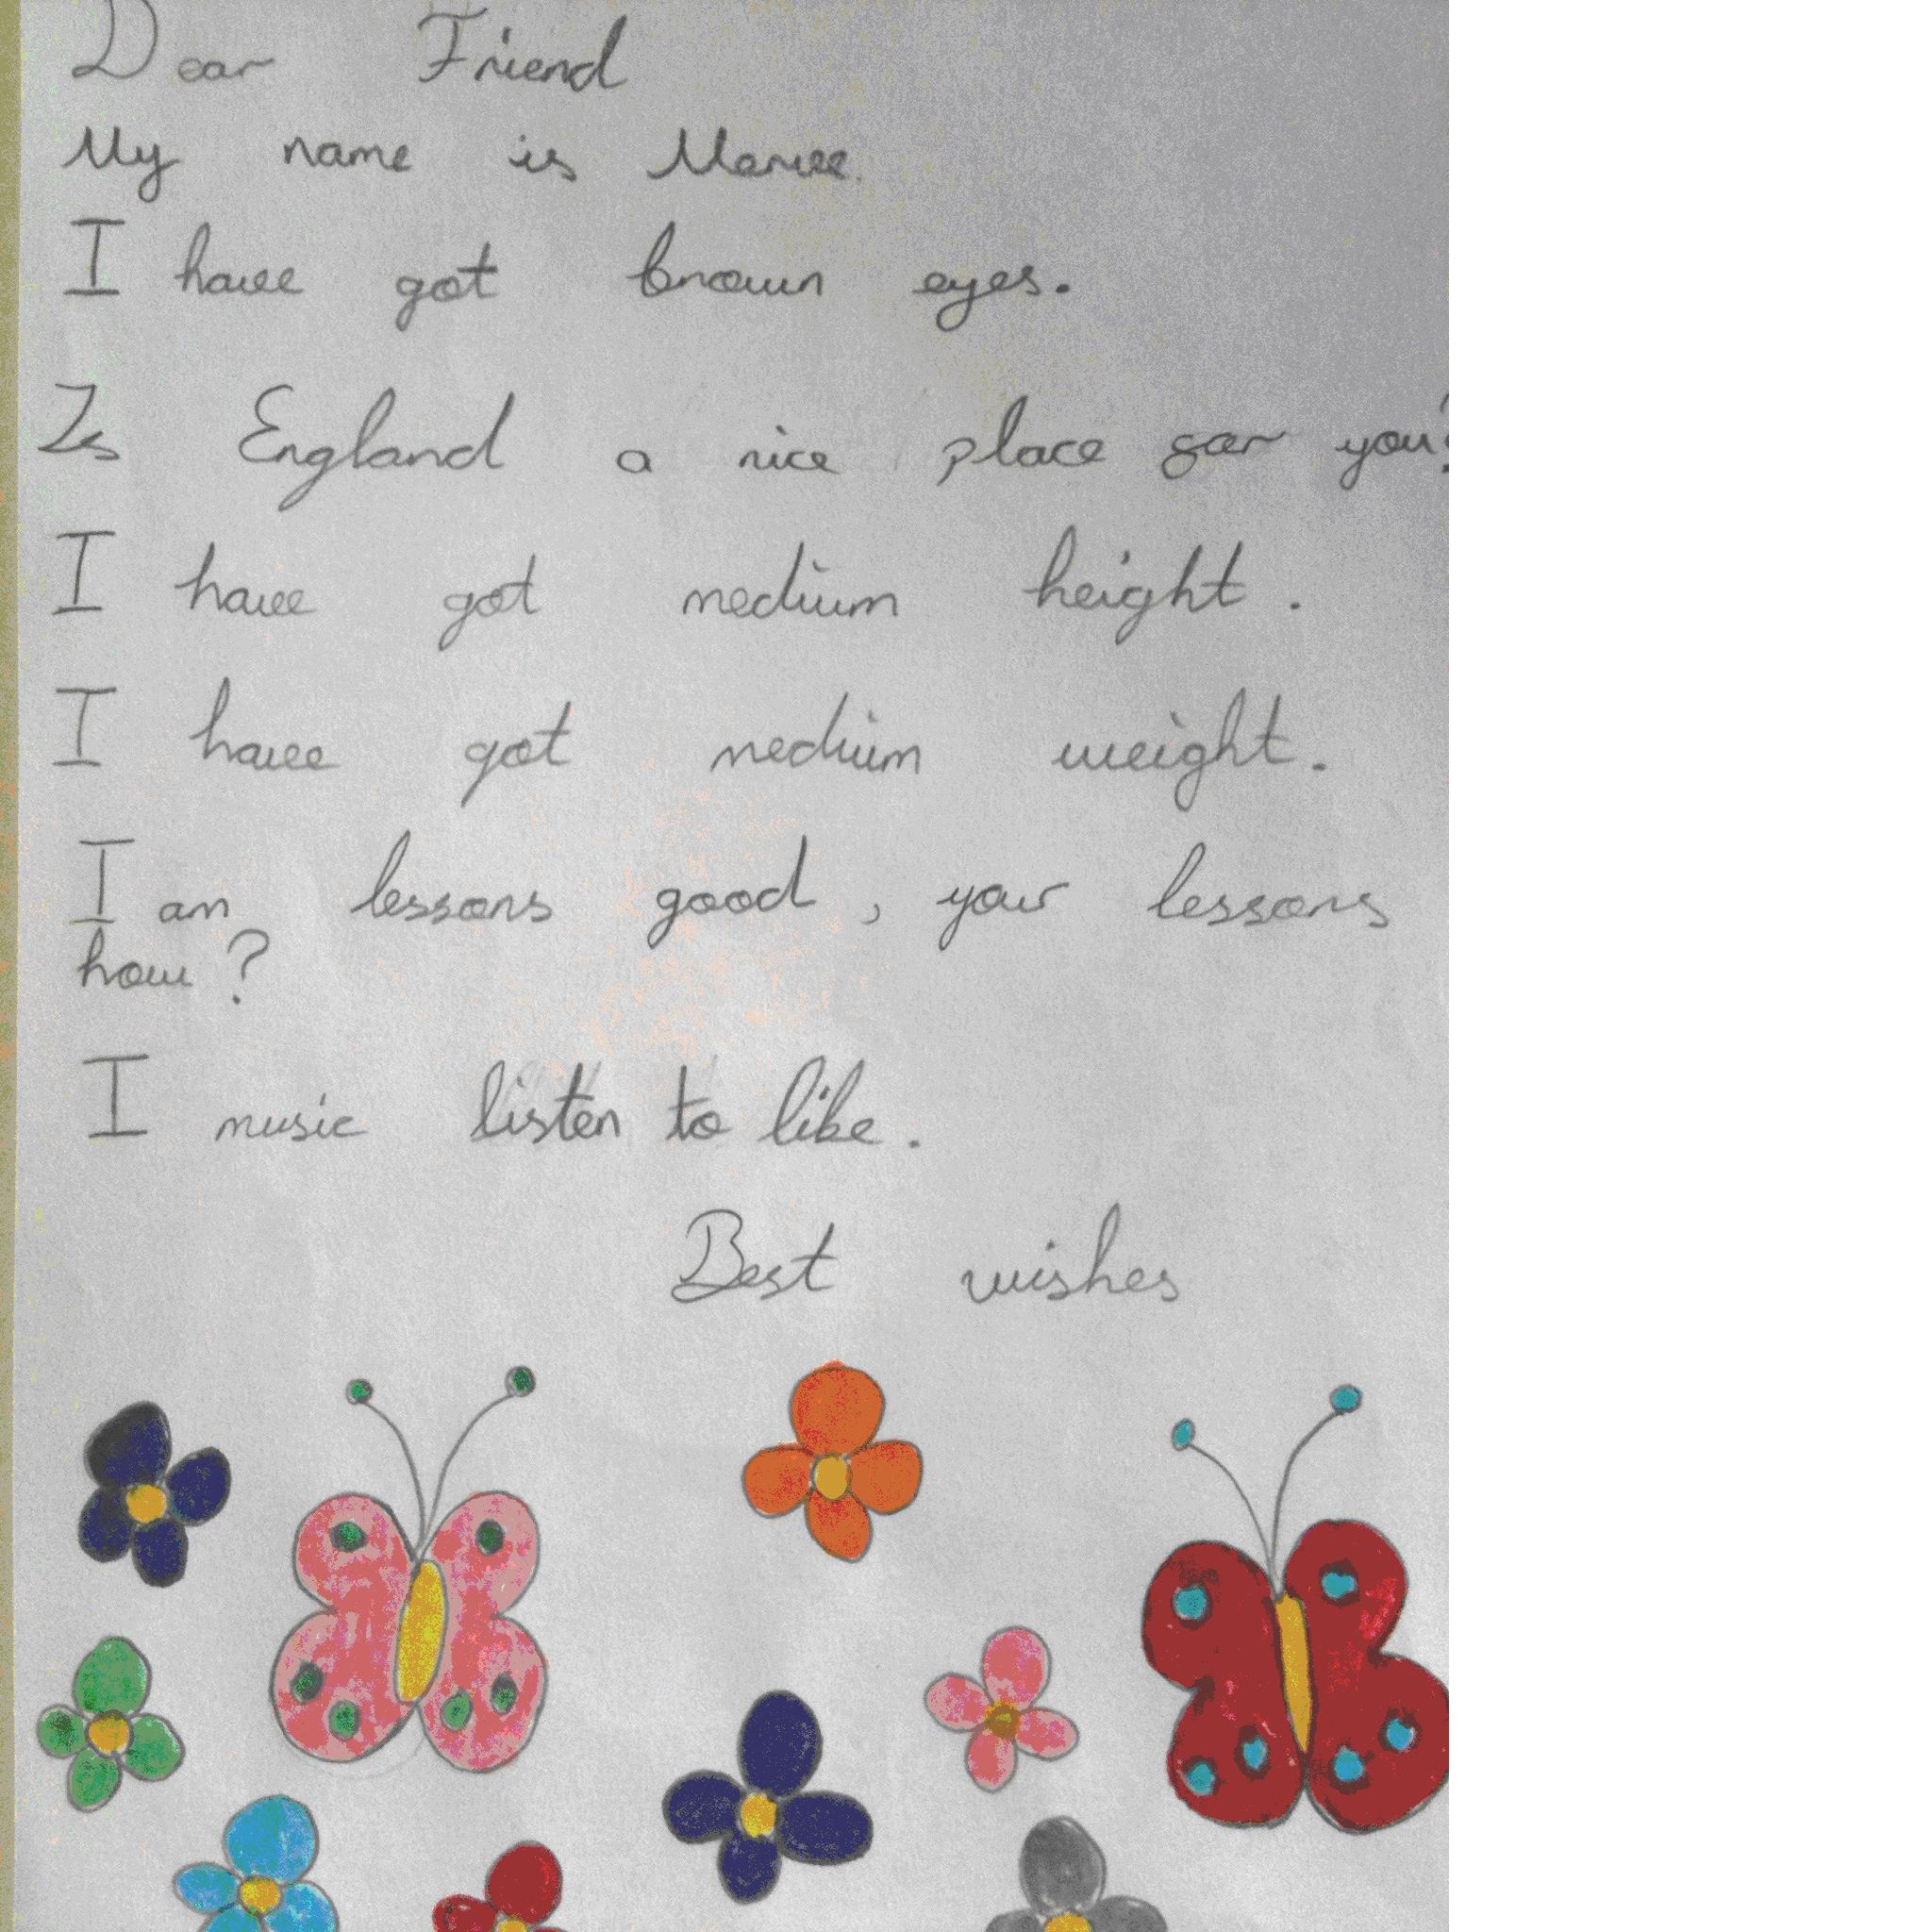 Dear Friend
My name is Merve.
I have got brown eyes.
Is England a nice place for you?
I have got medium height.
I have got medium weight.
I am lessons good, your lessons
how?
I music listen to like.
Best wishes